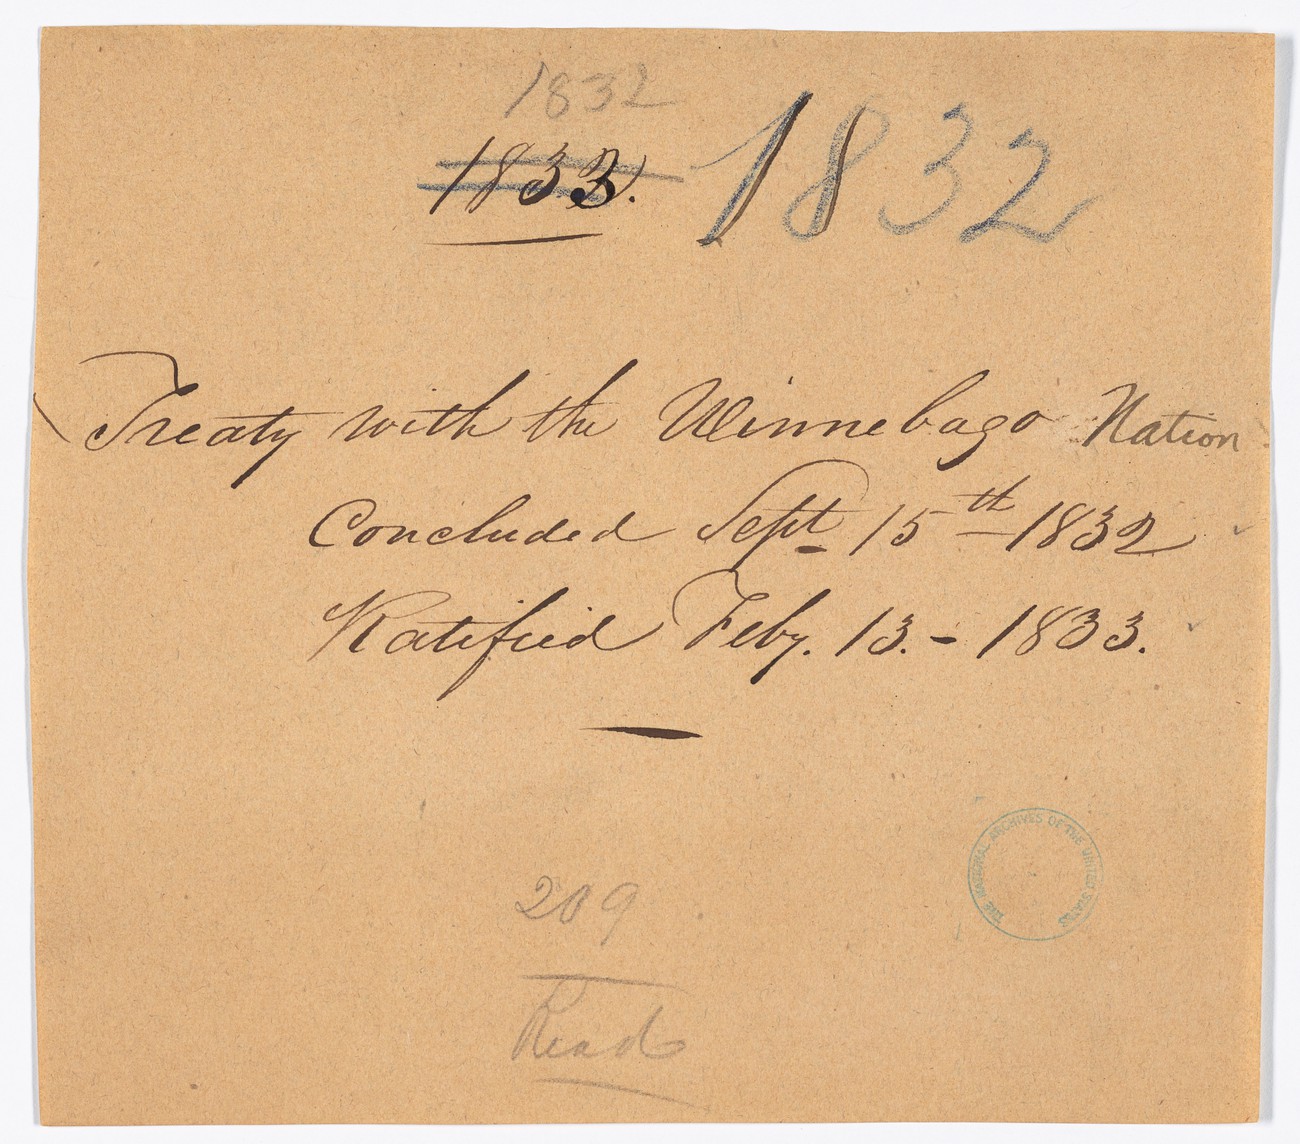 1832
1833. 1832
Treaty with the Winnebago Nation
Concluded Sept 15th 1832
Ratified Feby. 13. - 1833.
THE NATIONAL ARCHIVES OF THE UNITED STATES
209
Read